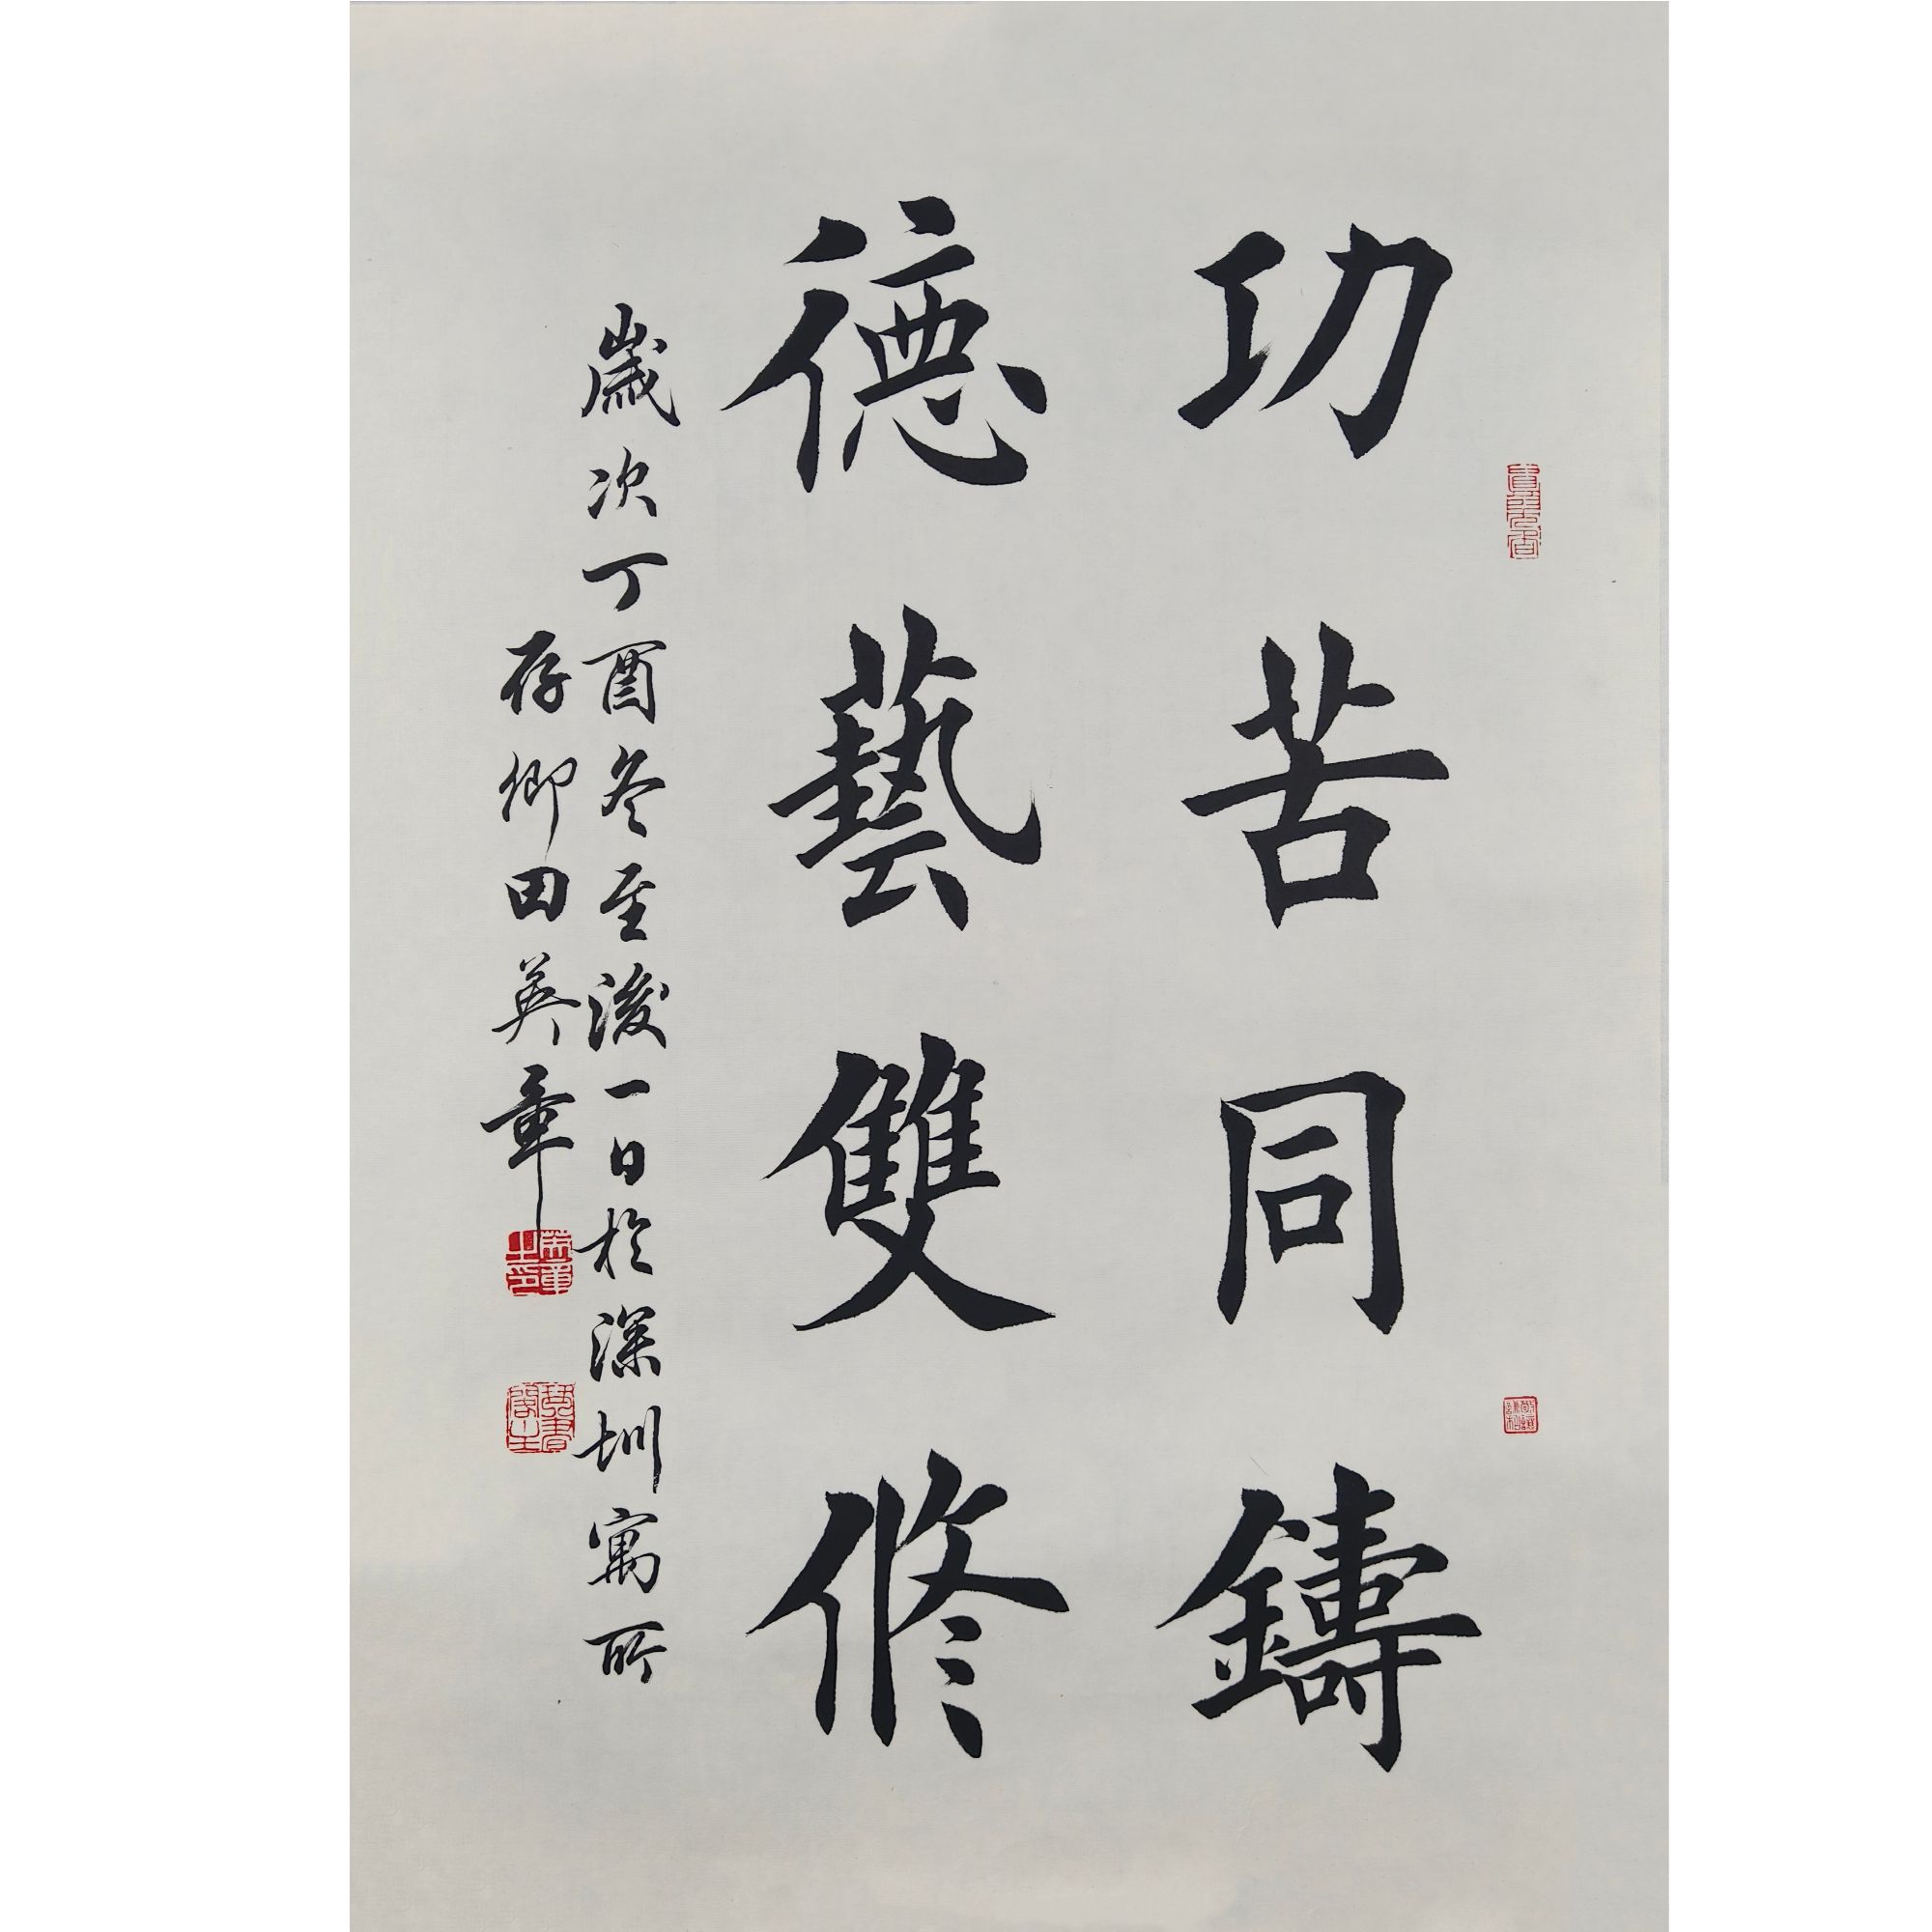 功苦同鑄
德藝雙修
歲次丁酉冬至後一日於深圳寓所
存卿田英章